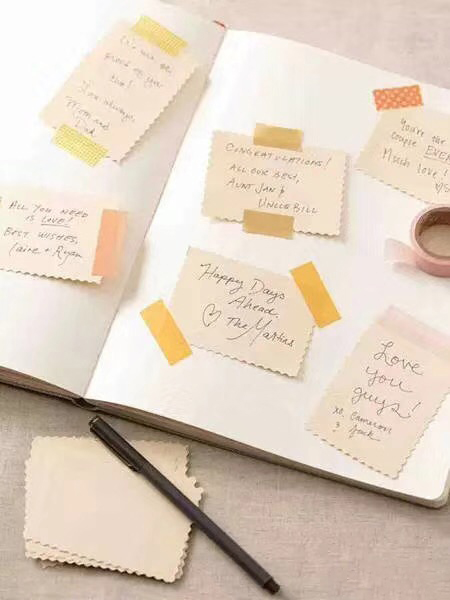 so
proud of you
two!
Love always,
Mom and
Dad
ALL YOU NEED
IS LOVE!
BEST WISHES,
Claire + Ryan
CONGRATULATIONS!
ALL OUR BEST,
AUNT JAN &
UNCLE BILL
Happy Days
Ahead.
♡ The Martins
You're the
couple EVER
Much love!
Love
you
guys!
xo, Cameron
& Jack